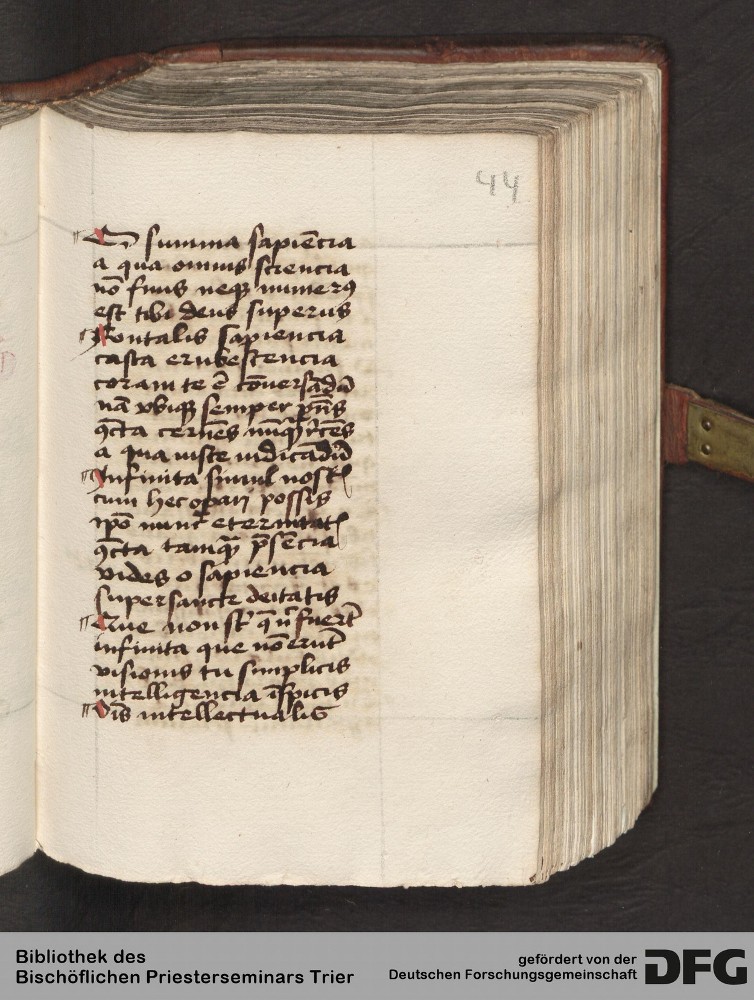 44
O summa sapiencia
a qua omnis sciencia
nō finis neqꝫ numerꝰ
est tibi deus superis
Fontalis sapiencia
casta erubescencia
coram te ē cōuersādū
nā vbiqꝫ semper p̄ns
ꝯcta cernēs
a qua iuste iudicādū
Infinita simul nosti
cum hec possis
ip̄o nunc eternitatis
ꝯcta tamqͣ p̄sencia
vides o sapiencia
supersancte deitatis
Que non st̄ q̄ n̄ fuerūt
infinita que nō erūt
visionis tu simplicis
intelligencia īspicis
Vis intellectualis
Bibliothek des
Bischöflichen Priesterseminars Trier
gefördert von der
Deutschen Forschungsgemeinschaft
DFG